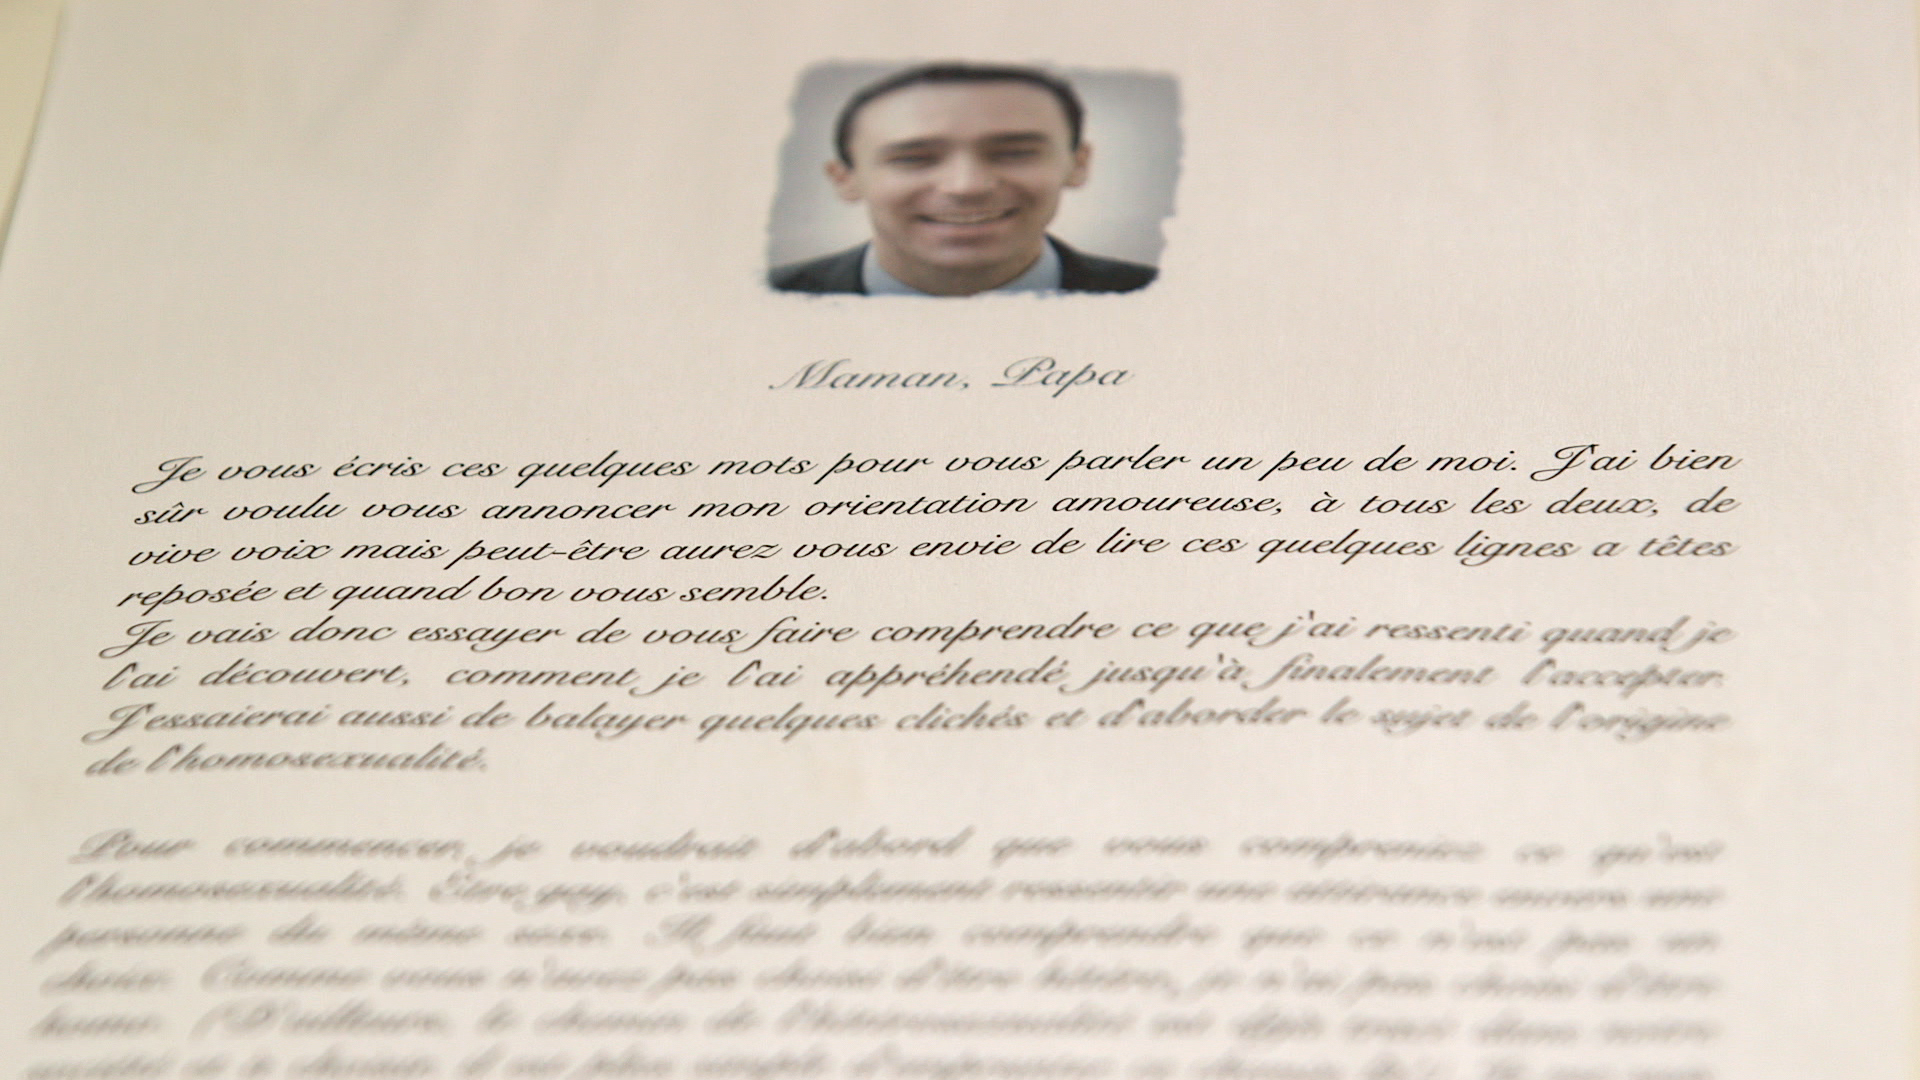 Maman, Papa
Je vous écris ces quelques mots pour vous parler un peu de moi. J'ai bien
sûr voulu vous annoncer mon orientation amoureuse, à tous les deux, de
vive voix mais peut-être aurez vous envie de lire ces quelques lignes a têtes
reposée et quand bon vous semble.
Je vais donc essayer de vous faire comprendre ce que j'ai ressenti quand je
l'ai découvert, comment je l'ai appréhendé jusqu'à finalement l'accepter.
J'essaierai aussi de balayer quelques clichés et d'aborder le sujet de l'origine
de l'homosexualité.
Pour commencer, je voudrais d'abord que vous compreniez ce qu'est
l'homosexualité. Etre gay, c'est simplement ressentir une attirance envers une
personne du même sexe. Il faut bien comprendre que ce n'est pas un
choix. Comme vous n'avez pas choisi d'être hétéro, je n'ai pas choisi d'être
homo. (D'ailleurs, le chemin de l'hétérosexualité est déjà tracé dans notre